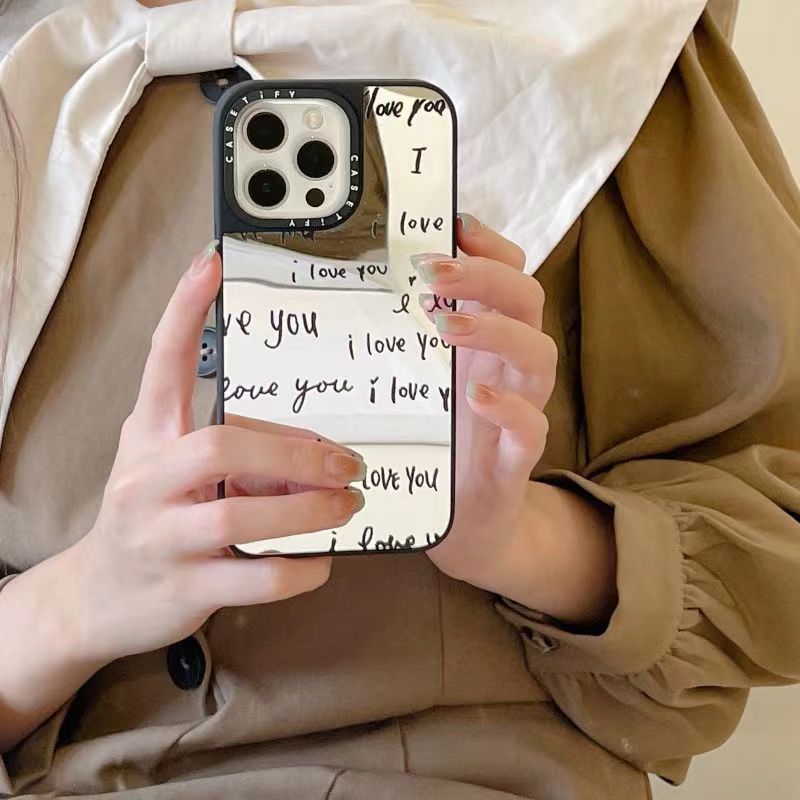 CASETiFY
CASETiFY
love you
I
i love
i love you
ve you
i love you
love you i love y
LOVE YOU
i love